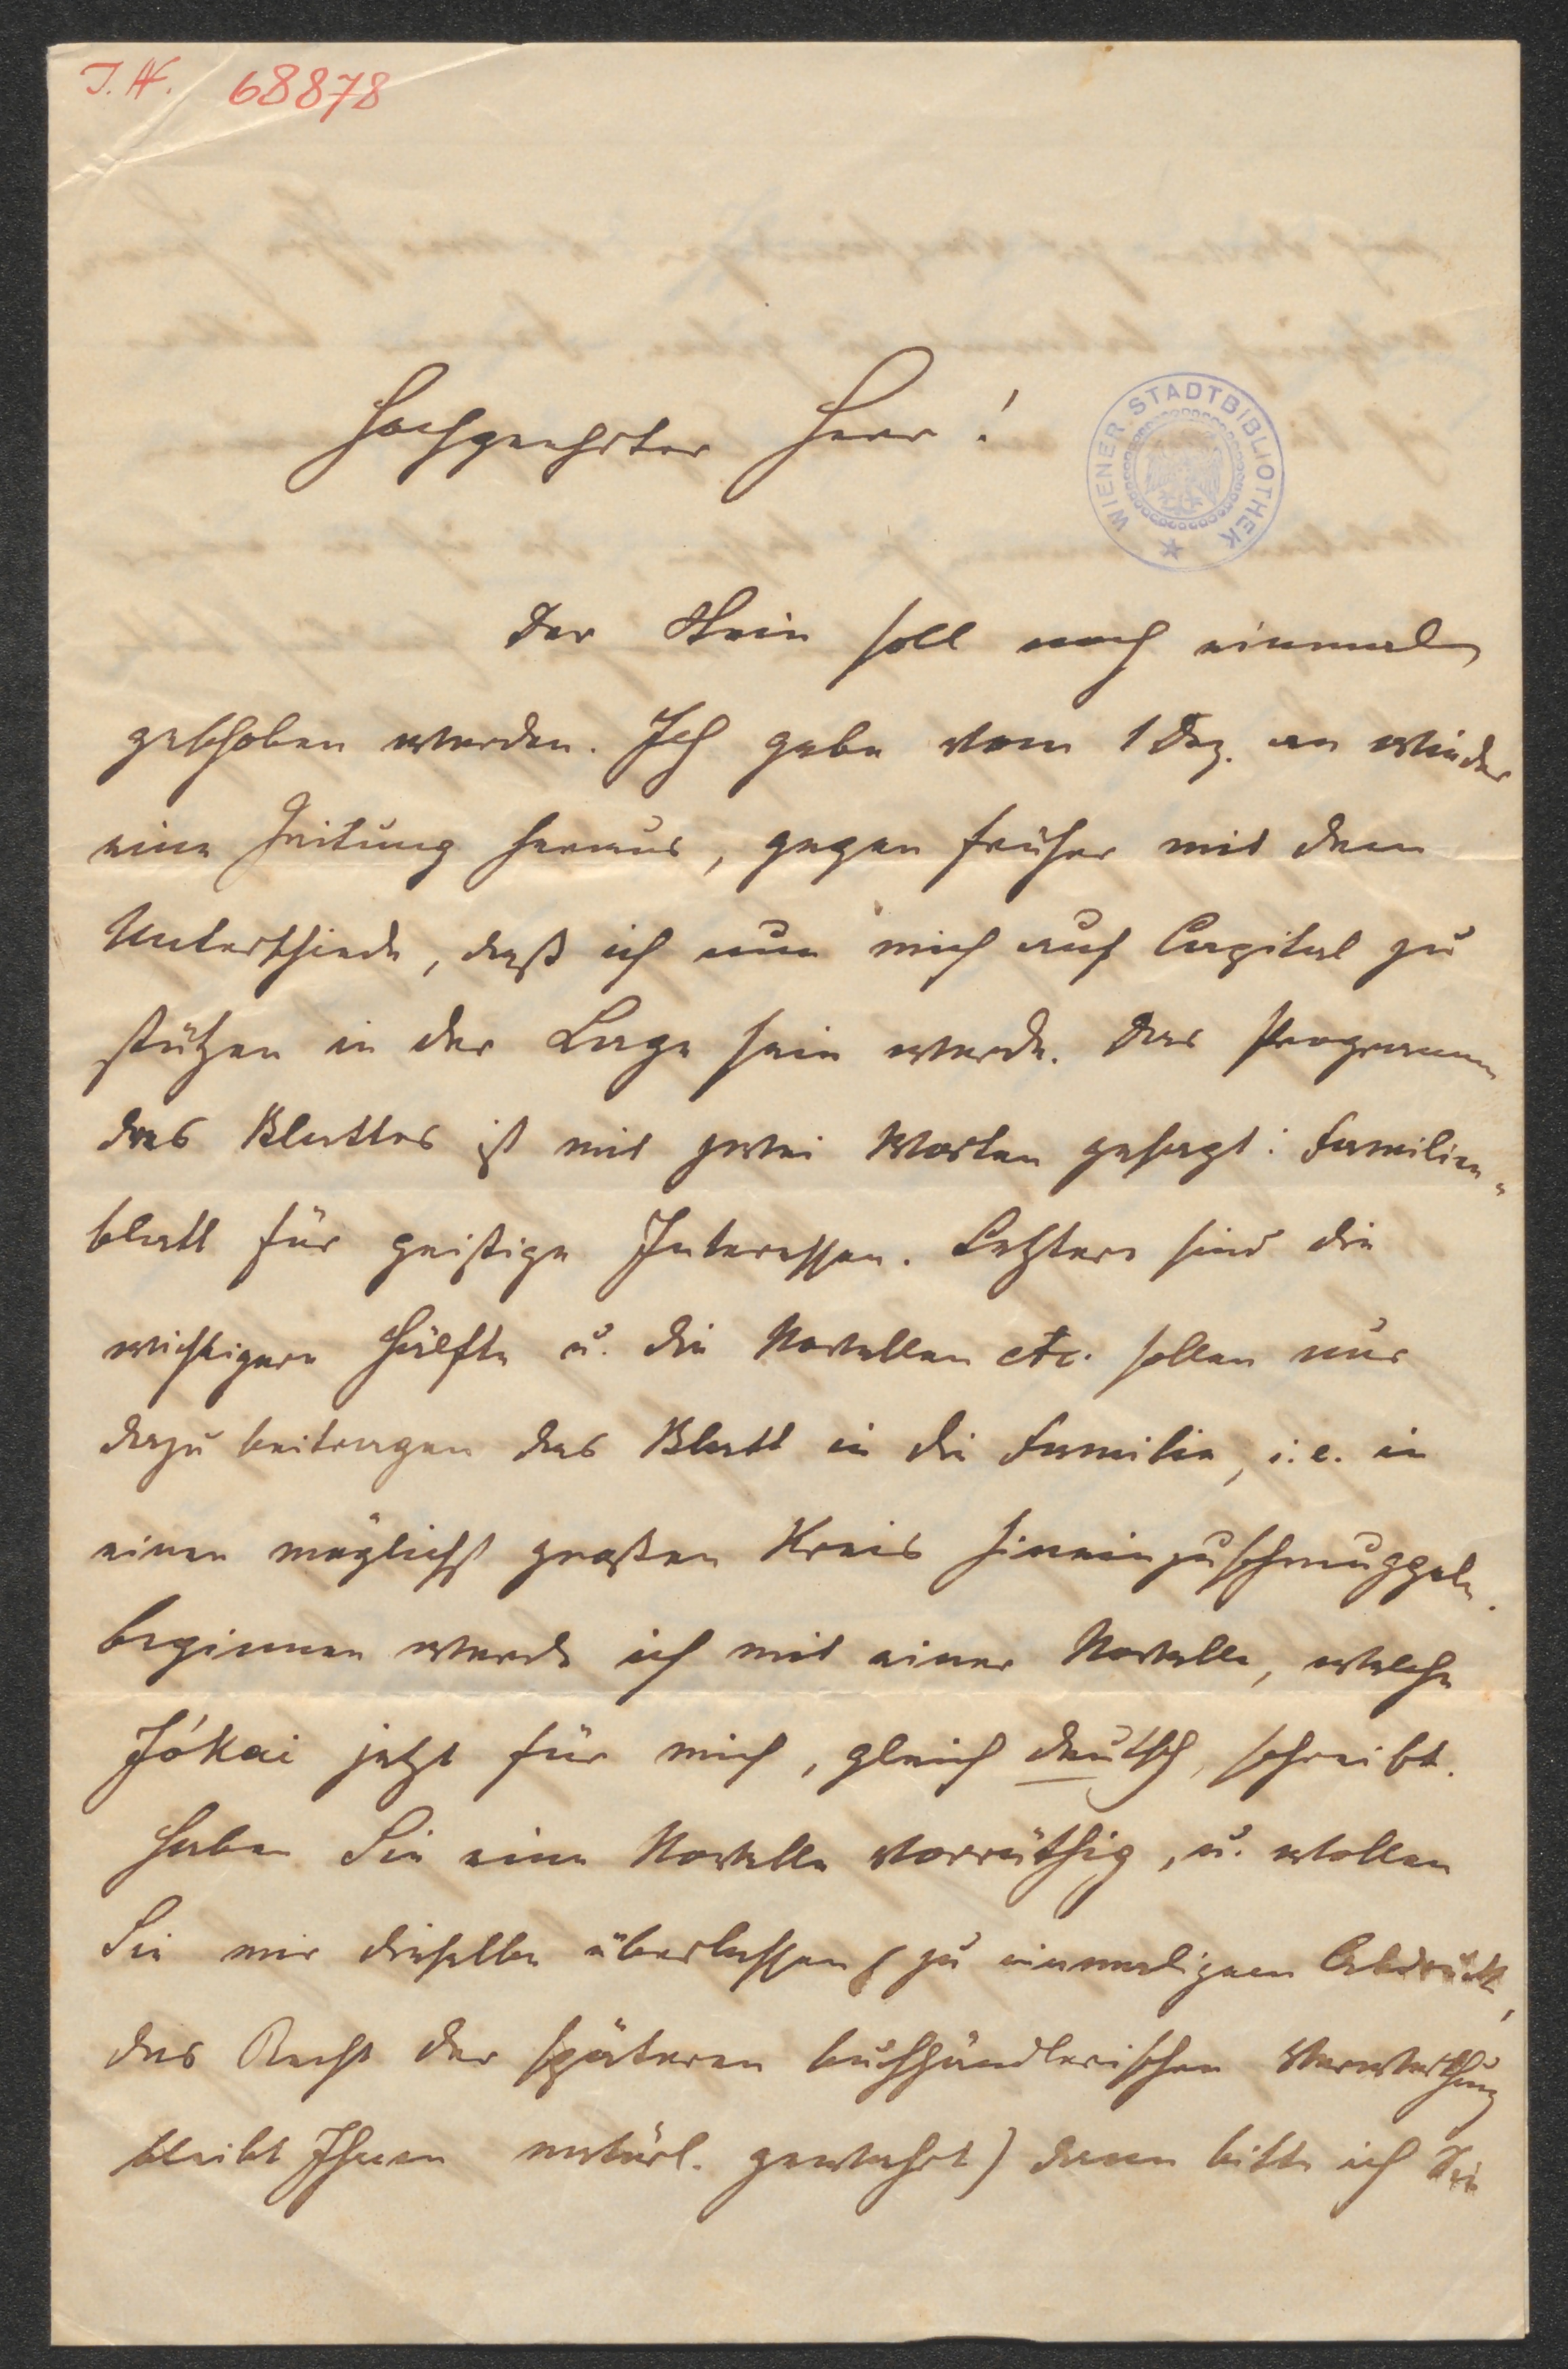 I.N. 68878
Hochgeehrter Herr!
WIENER STADTBIBLIOTHEK
Der Stein soll noch einmal
gehoben werden. Ich gebe vom 1 Dez. an wieder
eine Zeitung heraus, gegen früher mit dem
Unterschiede, daß ich nun mich auf Capital zu
stützen in der Lage sein werde. Das Programm
des Blattes ist mit zwei Worten gesagt: Familien-
blatt für geistige Interessen. Letztere sind die
wichtigere Hälfte u. die Novellen etc. sollen nur
dazu beitragen das Blatt in die Familie, i. e. in
einen möglichst großen Kreis hineinzuschmuggeln.
Beginnen werde ich mit einer Novelle, welche
Jókai jetzt für mich, gleich deutsch, schreibt.
Haben Sie eine Novelle vorräthig, u. wollen
Sie mir dieselbe überlassen (zu einmaligem Abdruck,
das Recht der späteren buchhändlerischen Verwerthung
bleibt Ihnen natürl. gewahrt) dann bitte ich Sie